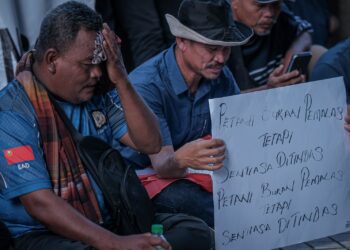 PETANI BUKAN PEMALAS
TETAPI
SENTIASA DITINDAS
PETANI BUKAN PEMALAS
TETAPI
SENTIASA DITINDAS